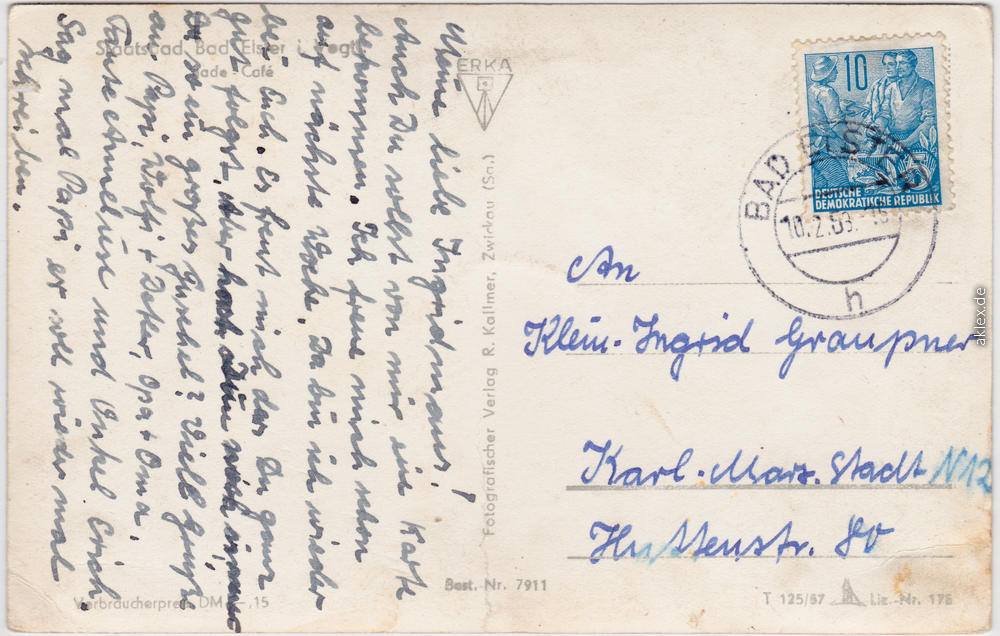 Staatsbad Bad Elster i. Vogtl.
Bade-Café
Meine liebe Ingridmaus!
Auch Du sollst von mir eine Karte
bekommen. Ich freue mich schon
auf nächste Woche. Da bin ich wieder
bei Euch. Es freut mich das Du ganz
gut folgst. Aber hast Du noch immer
so ein großes Viele Grüße
an Papi, Wolfi + Peter, Opa + Oma,
Tante Anneliese und Onkel Erich.
Sag mal Papi er soll wieder mal
schreiben.
Verbraucherpreis DM -,15
ERKA
Fotografischer Verlag R. Kallmer, Zwickau (Sa.)
Best. Nr. 7911
10
5
DEUTSCHE
DEMOKRATISCHE REPUBLIK
BAD ELSTER
10.2.59
h
An
Klein-Ingrid Graupner
Karl-Marx-Stadt N12
Huttenstr. 80
T 125/57 Liz.-Nr. 178
aklex.de